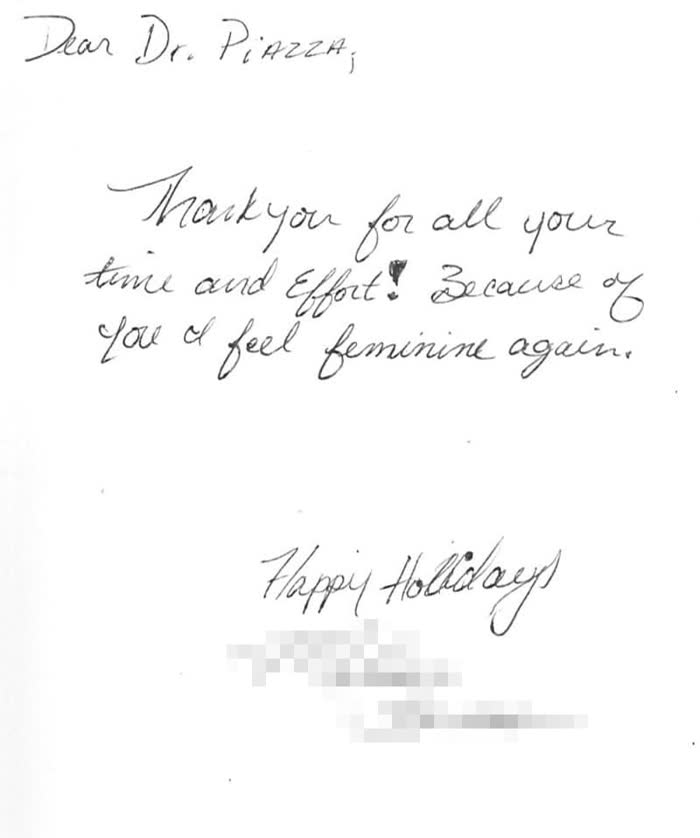 Dear Dr. PiAZZA;
Thank you for all your
time and Effort! Because of
you I feel feminine again.
Happy Holidays